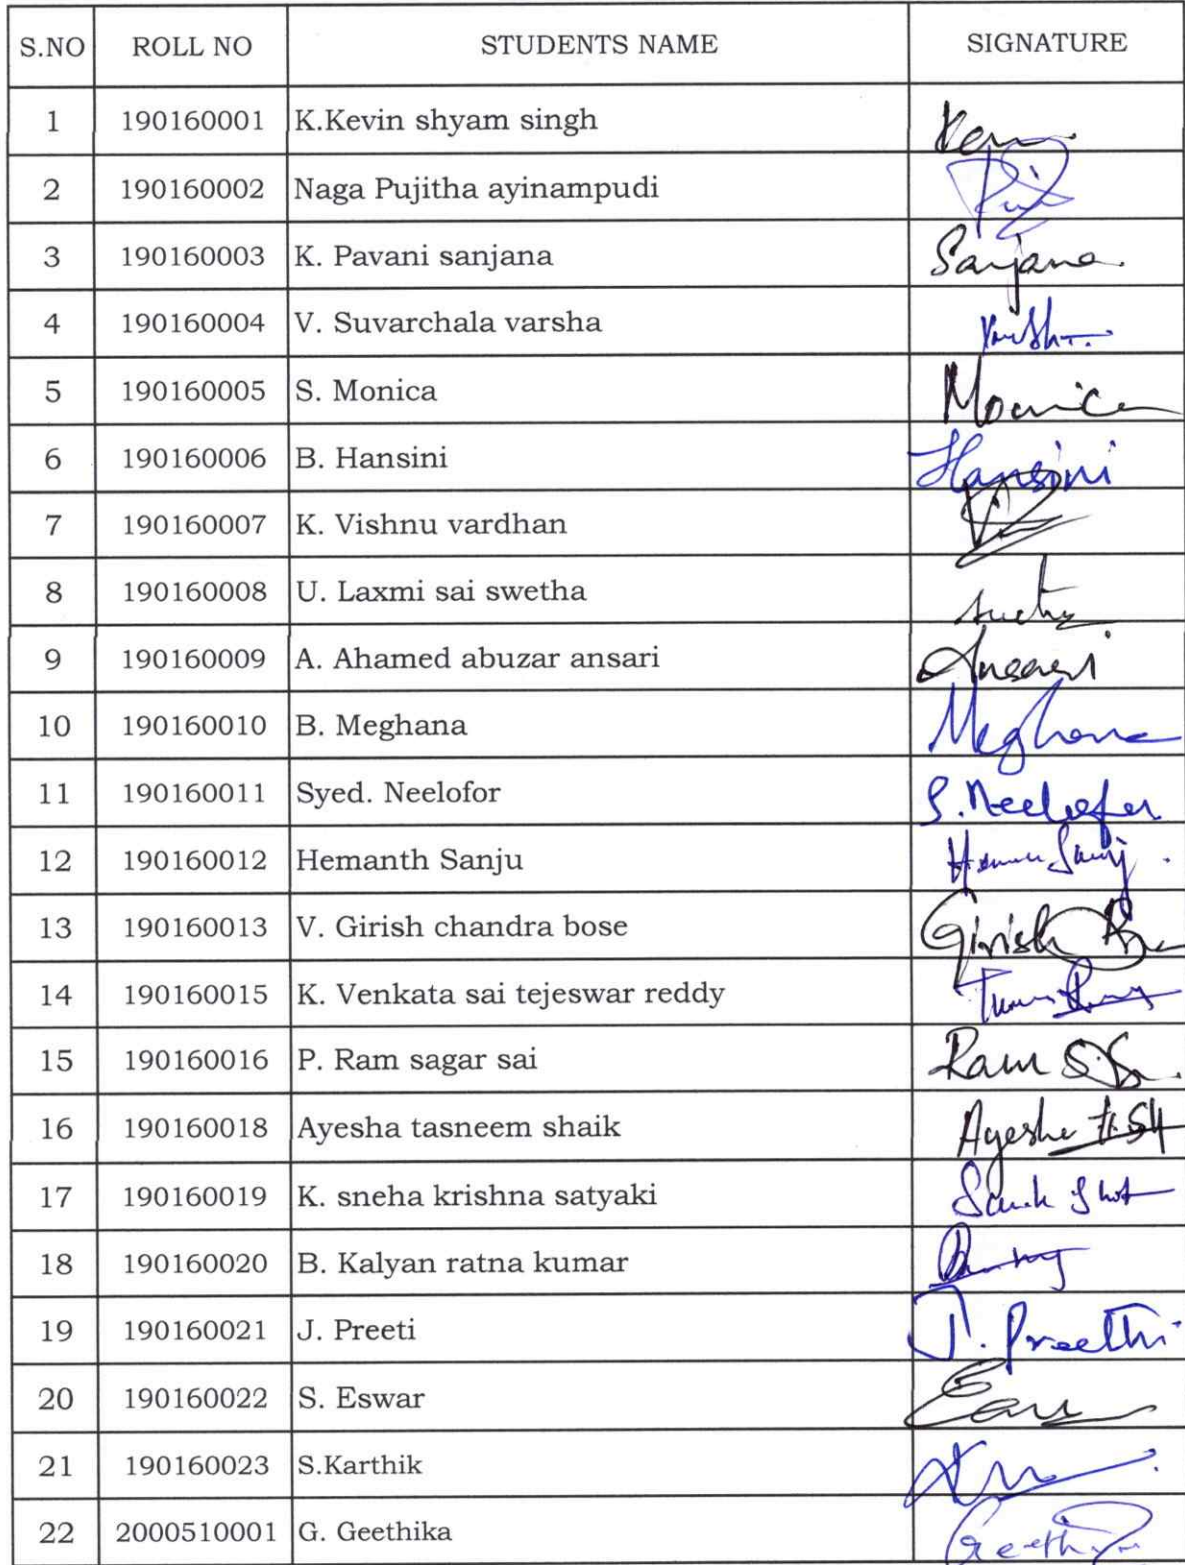 S.NO ROLL NO STUDENTS NAME SIGNATURE
1 190160001 K.Kevin shyam singh
2 190160002 Naga Pujitha ayinampudi
3 190160003 K. Pavani sanjana Sanjana
4 190160004 V. Suvarchala varsha
5 190160005 S. Monica Monica
6 190160006 B. Hansini Hansini
7 190160007 K. Vishnu vardhan
8 190160008 U. Laxmi sai swetha
9 190160009 A. Ahamed abuzar ansari Ansari
10 190160010 B. Meghana Meghana
11 190160011 Syed. Neelofor S. Neelofer
12 190160012 Hemanth Sanju
13 190160013 V. Girish chandra bose Girish
14 190160015 K. Venkata sai tejeswar reddy
15 190160016 P. Ram sagar sai Ram
16 190160018 Ayesha tasneem shaik Ayesha
17 190160019 K. sneha krishna satyaki
18 190160020 B. Kalyan ratna kumar
19 190160021 J. Preeti J. Preethi
20 190160022 S. Eswar
21 190160023 S.Karthik
22 2000510001 G. Geethika